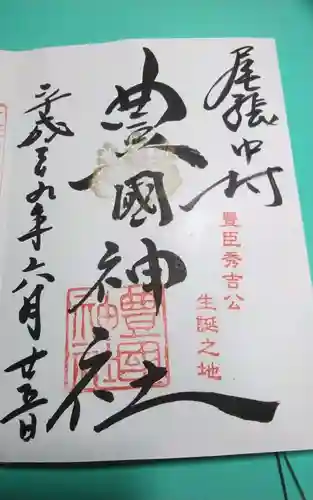 尾張中村
豊臣秀吉公
生誕之地
豊國神社
豊國
神社
平成二九年六月廿五日